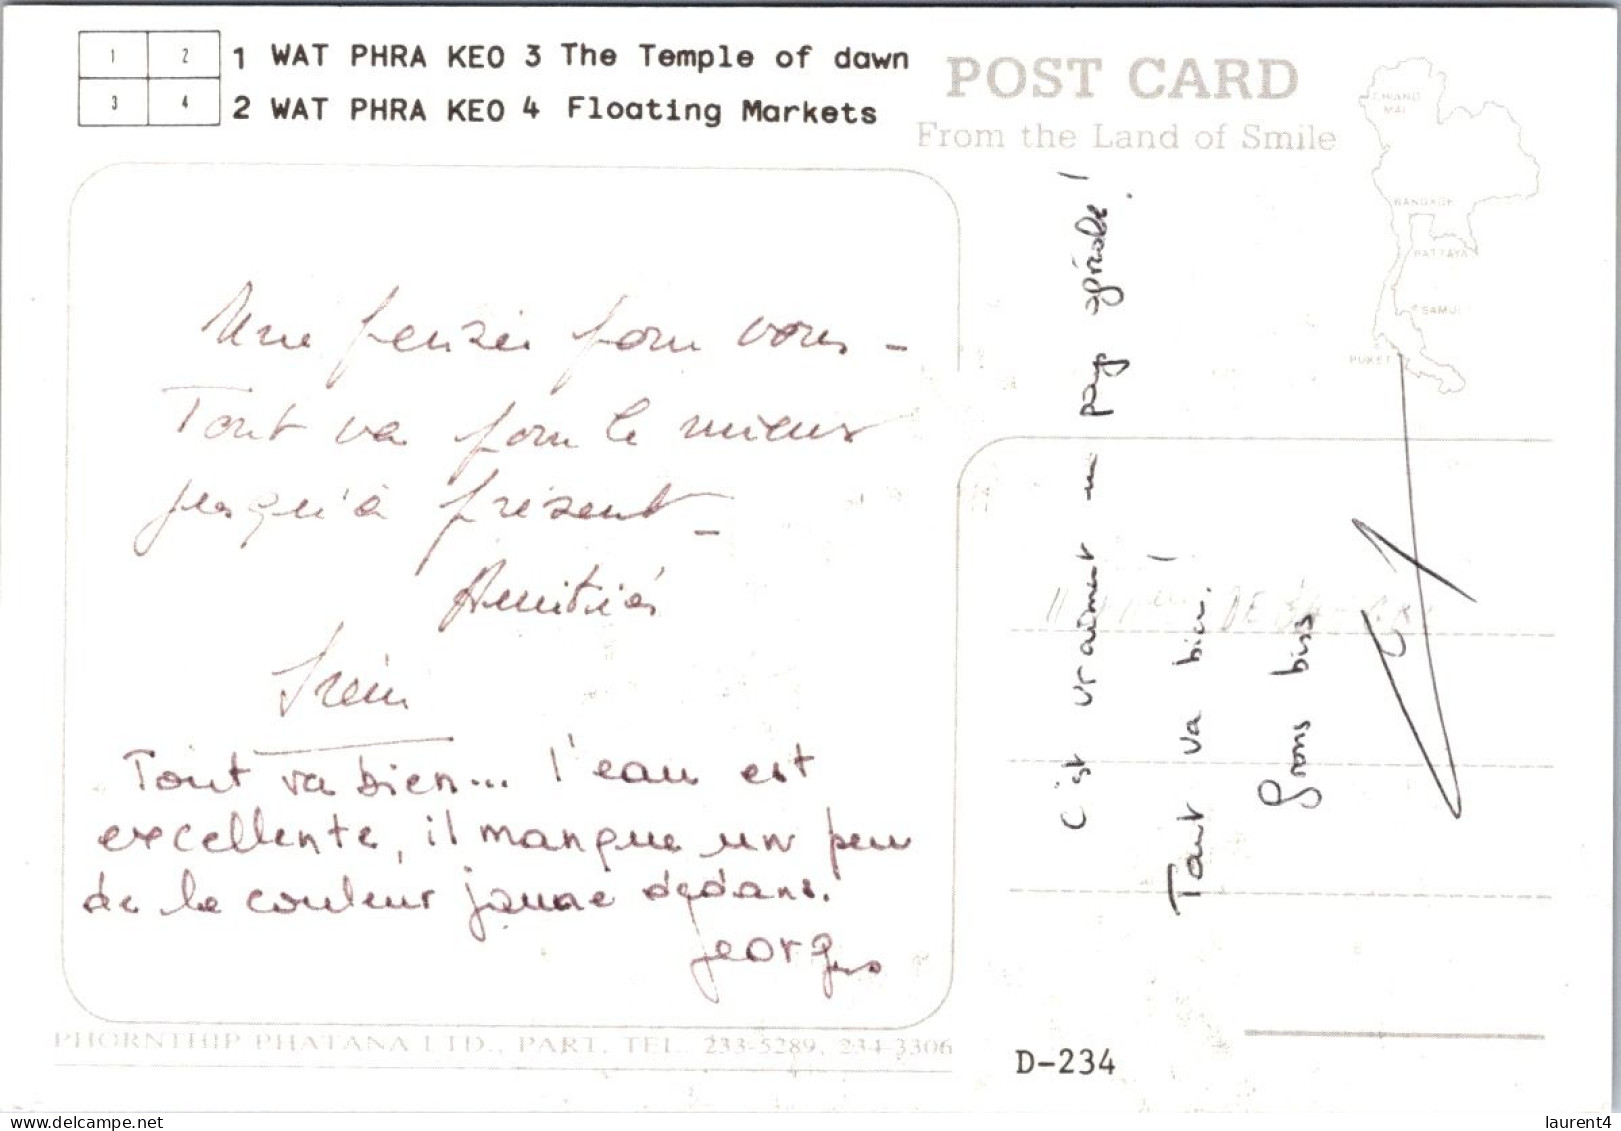 1 2
3 4
1 WAT PHRA KEO 3 The Temple of dawn
2 WAT PHRA KEO 4 Floating Markets
POST CARD
From the Land of Smile
CHIANG
MAI
BANGKOK
PATTAYA
SAMUI
PUKET
Une pensée pour vous -
Tout va pour le mieux
jusqu'à présent -
Amitiés
Tout va bien... l'eau est
excellente, il manque un peu
de la couleur jaune dedans!
Georges
C'est vraiment un pays agréable!
Tout va bien!
Gros bises
PHORNTHIP PHATANA LTD., PART. TEL. 233-5289, 234-3306
D-234
laurent4